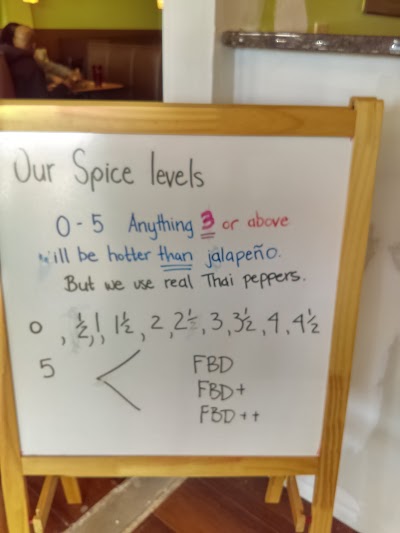 Our Spice levels
0-5 Anything 3 or above
will be hotter than jalapeño.
But we use real Thai peppers.
0, ½, 1, 1½, 2, 2½, 3, 3½, 4, 4½
5 < FBD
FBD+
FBD++